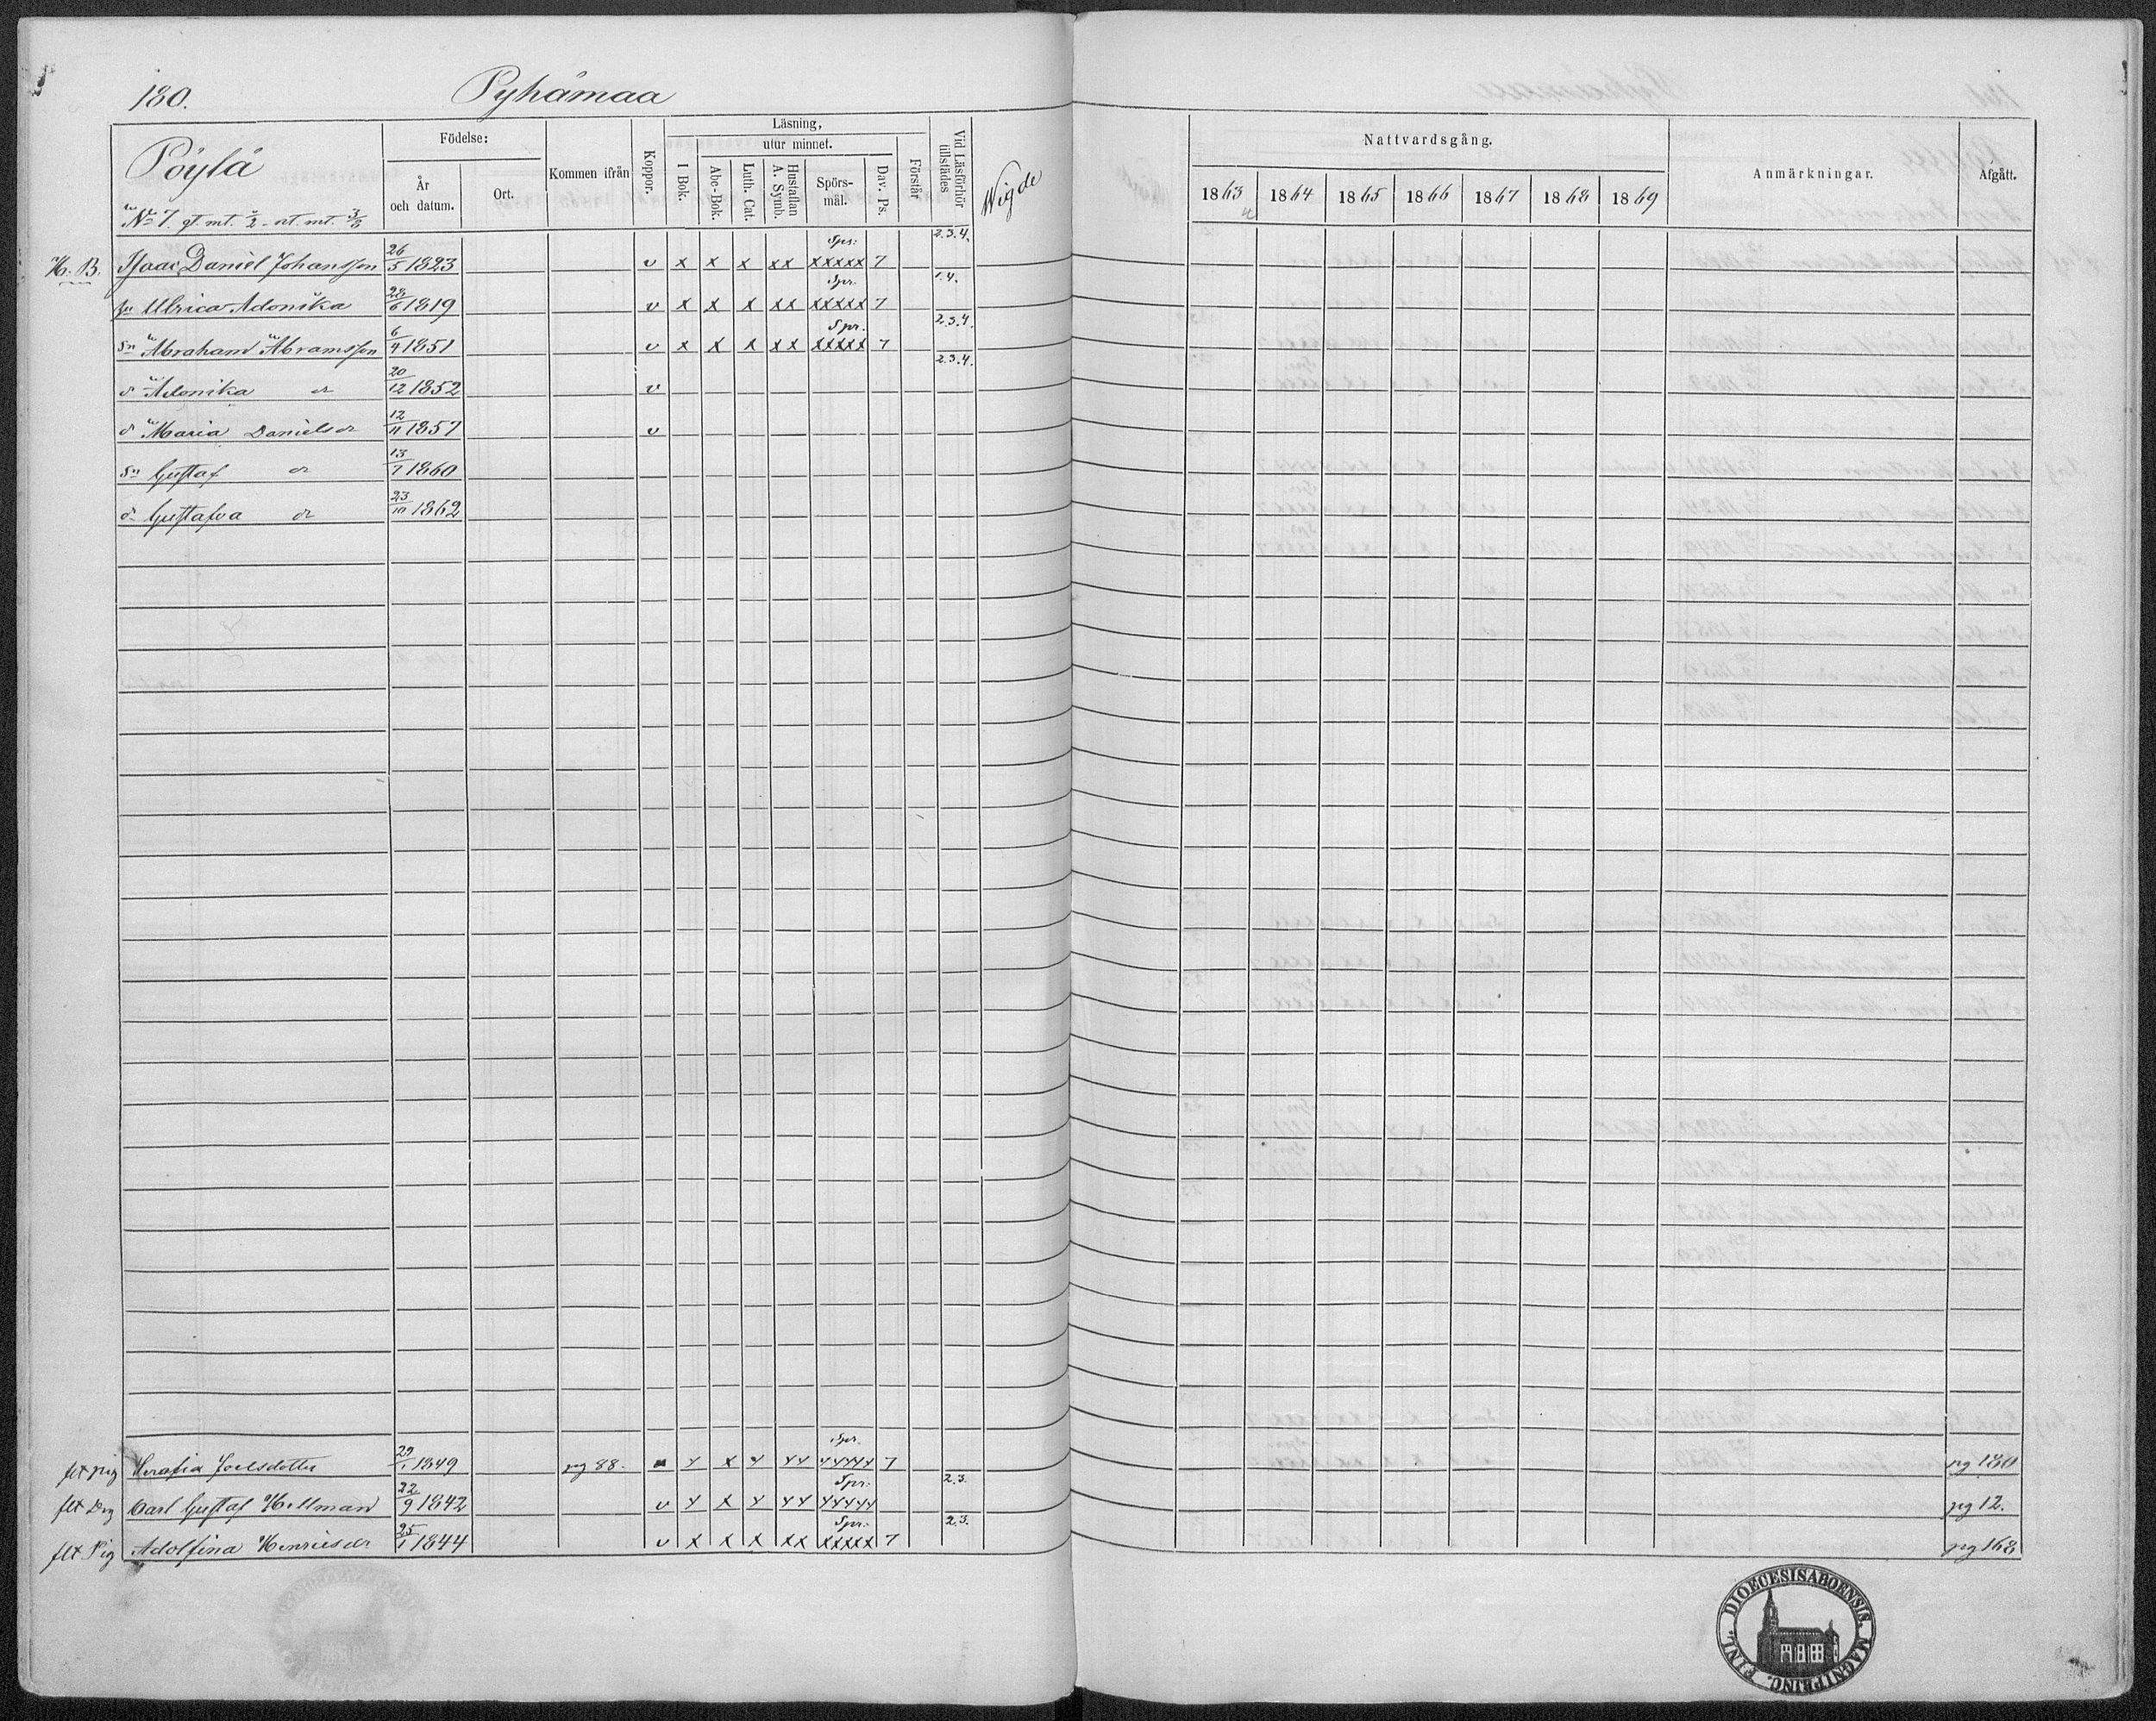 180. Pyhämaa
Pöylä
No 7. gt. mt. 1/2 nt. mt. 3/8
Födelse:
År och datum.
Ort.
Kommen ifrån
Koppor.
Läsning,
I Bok.
utur minnet.
Abc-Bok.
Luth. Cat.
Hustaflan A. Symb.
Spörsmål.
Dav. Ps.
Förstår
Vid Läsförhör tillstädes
Wigde
Nattvardsgång.
1863 1864 1865 1866 1867 1868 1869
Anmärkningar.
Afgått.
Isaac Daniel Johansson 26/5 1823 v x x x xx Spr: xxxxx 7 2.3.4.
hu Ulrica Adonika 28/6 1819 v x x x xx Spr. xxxxx 7 1.4.
Sn Abraham Abramsson 6/4 1851 v x x x xx Spr. xxxxx 7 2.3.4.
dr Adonika dr 20/12 1852 v 2.3.4.
dr Maria Danielsdr 12/11 1857 v
Sn Gustaf dr 13/7 1860
dr Gustafva dr 23/10 1862
flt pig Serafia Joelsdotter 29/1 1849 pg 88. x Spr. 7 pg 180
flt Drg Carl Gustaf Hellman 22/9 1842 v x Spr: 2.3. pg 12.
flt Pig Adolfina Henricsdr 25/1 1844 v x x x xx Spr: xxxxx 7 2.3. pg 168
DIOECESIS ABOENSIS. MAGNI PRINC. FINL.